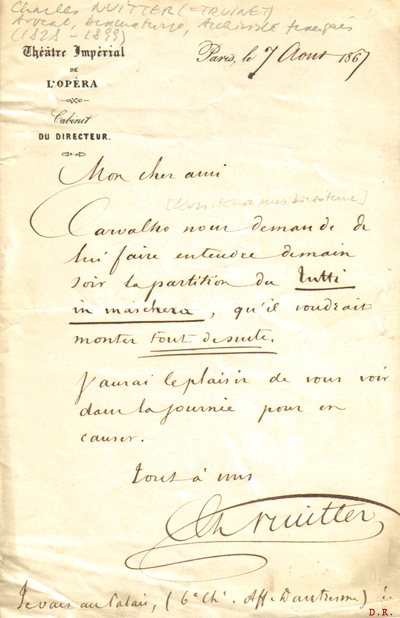 Charles NUITTER (= TRUINET)
Avocat, Dramaturge, Archiviste français
(1828 - 1899)
Théâtre Impérial
DE
L'OPÉRA
Cabinet
DU DIRECTEUR.
Paris, le 7 Aout 1867
Mon cher ami
Carvalho nous demande de
lui faire entendre demain
soir la partition du tutti
in maschera, qu'il voudrait
monter tout de suite.
J'aurai le plaisir de vous voir
dans la journée pour en
causer.
tout à vous
Ch Nuitter
Je vais au Palais, (6e Ch. Aff. Dautresme)
D.R.